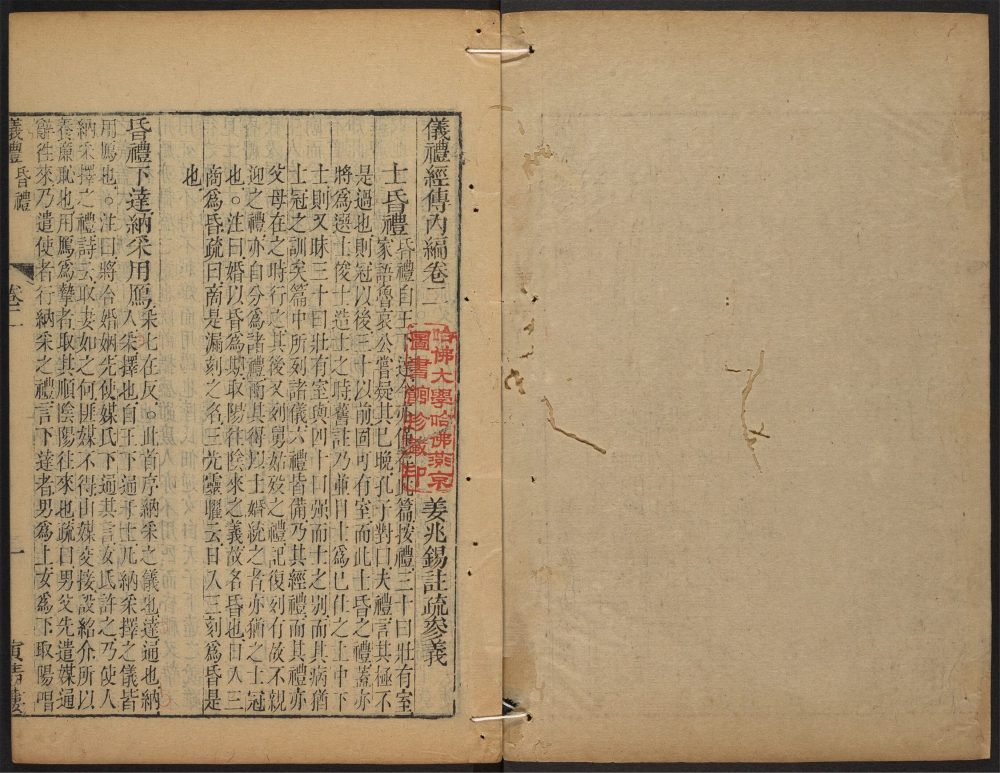 儀禮經傳內編卷二
姜兆錫註疏參義
士昏禮昏禮自王下達今亦僅存此篇按禮三十曰壯有室
家語魯哀公嘗疑其已晚孔子對曰夫禮言其極不
是過也則冠以後三十以前固可有室而此士昏之禮蓋亦
將爲選士俊士造士之時舊註乃兼目士爲已仕之上中下
士則又昧三十曰壯有室與四十曰强而士之別而具病猶
士冠之訓矣篇中所列諸儀六禮皆備乃其經禮而其禮亦
父母在之時行之其後又列舅姑歿之禮記復列有故不親
迎之禮亦自分爲諸禮而其得以士婚統之者亦猶之士冠
也。注曰婚以昏爲期取陽往陰來之義故名昏也日入三
商爲昏疏曰商是漏刻之名三光靈曜云日入三刻爲昏是
也
昏禮下達納采用鴈采七在反。此首序納采之儀也達通也納
采擇也自王下通于士凡納采擇之儀皆
用鴈也。注曰將合婚姻先使媒氏下通其言女氏許之乃使人
納采擇之禮詩云取妻如之何匪媒不得由媒交接設紹介所以
養廉恥也用鴈爲摯者取其順陰陽往來也疏曰男父先遣媒通
辭往來乃遣使者行納采之禮言下達者男爲上女爲下取陽唱
儀禮 昏禮
卷二
一
寅清樓
哈佛大學哈佛燕京
圖書館珍藏印